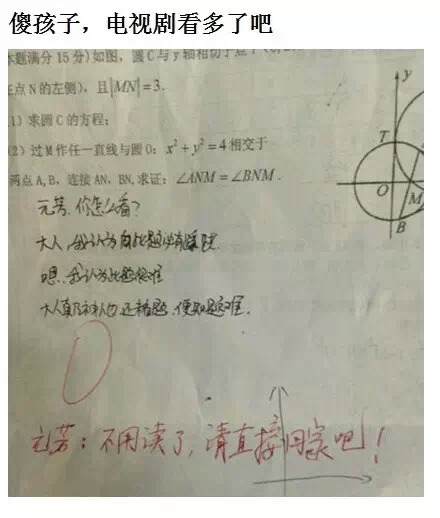 傻孩子，电视剧看多了吧
本题满分15分)如图，圆C与y轴相切于点T
点N的左侧)，且|MN|=3.
1)求圆C的方程;
(2)过M作任一直线与圆O: x²+y²=4相交于
两点A,B，连接AN、BN,求证: ∠ANM=∠BNM.
y
T
O
M
B
元芳,你怎么看?
大人,我认为此题
嗯,我认为此题很难
大人真乃神人也,还
元芳:不用读了,请直接回家吧!